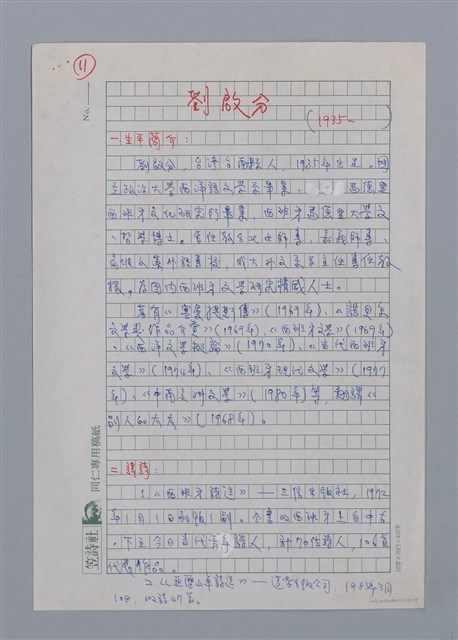 11
No.
劉啟分
(1935-
一生平簡介：
劉啟分，台灣台南縣人，1935年出生。國
立政治大學西洋語文學系畢業，馬德里
西班牙文化研究所畢業，西班牙馬德里大學文
、哲學博士。曾任教台北女師專、嘉義師專、
高雄文藻外語專校，淡大外文系主任專任教
授。在國內西班牙文學研究權威人士。
著有《塞　提斯傳》(1969年)、《諾貝爾
文學獎作品介賞》(1969年)、《西班牙文學》(1969年)
、《西洋文學概論》(1970年)、《當代西班牙
文學》(1974年)、《西班牙現代文學》(1977
年)、《中南美洲文學》(1980年)等，翻譯《
別人的太太》(1968年)。
二譯詩：
1.《西班牙詩選》—三信出版社，1972
年1月1日初版，全書收西班牙上自中古
，下至今日當代青年詩人，計70位詩人，106首
代表作品。
2.《亞歷山卓詩選》—遠景出版公司，1983年3月
10日，收詩47首。
笠詩社
同仁專用稿紙